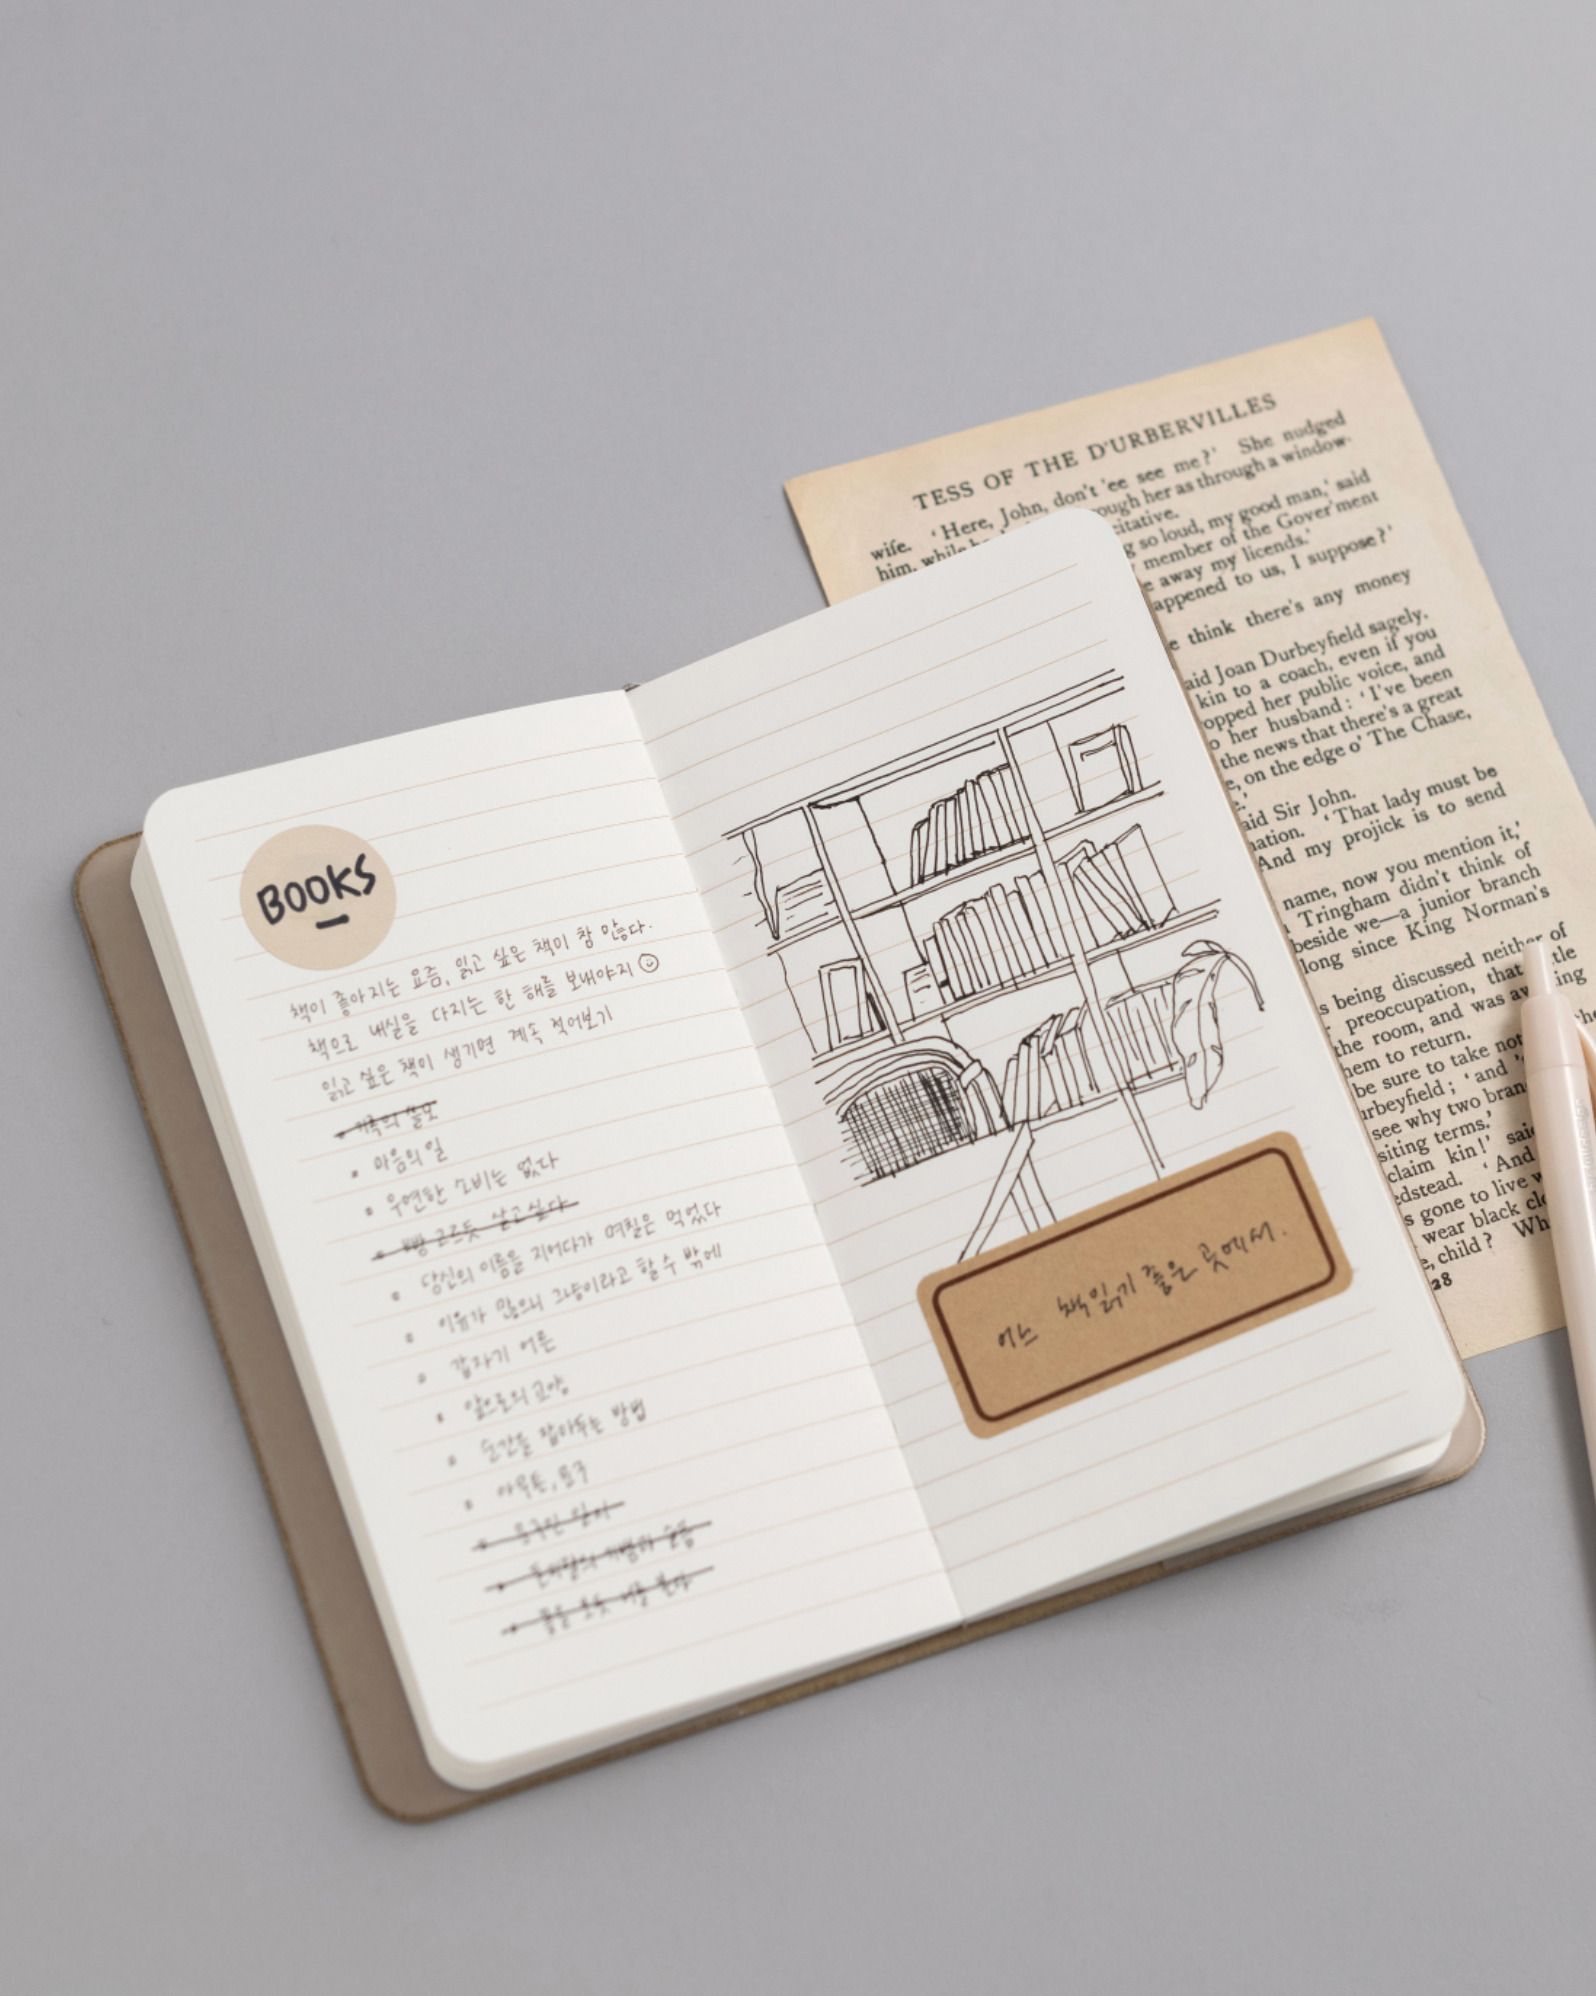 BOOKS
책이 좋아지는 요즘, 읽고 싶은 책이 참 많다.
책으로 내실을 다지는 한 해를 보내야지 ☺
읽고 싶은 책이 생기면 계속 적어보기
• 기록의 쓸모
• 마음의 일
• 우연한 소비는 없다
• 빵 고르듯 살고 싶다
• 당신의 이름을 지어다가 며칠은 먹었다
• 이유가 많으니 그냥이라고 할 수 밖에
• 갑자기 어른
• 앞으로의 교양
• 순간을 잡아두는 방법
• 아무튼, 문구
•
•
•
어느 책 읽기 좋은 곳에서.
TESS OF THE D'URBERVILLES
'Here, John, don't 'ee see me?' She nudged
wife.
him, while through her as through a window-
citative.
g so loud, my good man,' said
member of the Gover'ment
e away my licends.'
appened to us, I suppose?'
e think there's any money
aid Joan Durbeyfield sagely.
kin to a coach, even if you
opped her public voice, and
o her husband: 'I've been
the news that there's a great
e, on the edge o' The Chase,
e.'
aid Sir John.
nation. 'That lady must be
And my projick is to send
name, now you mention it,'
Tringham didn't think of
beside we—a junior branch
long since King Norman's
s being discussed neither of
preoccupation, that little
the room, and was awaiting
hem to return.
be sure to take not
urbeyfield; 'and
see why two bran
siting terms.'
claim kin!' said
edstead. 'And
s gone to live w
wear black clo
e, child? Wh
28